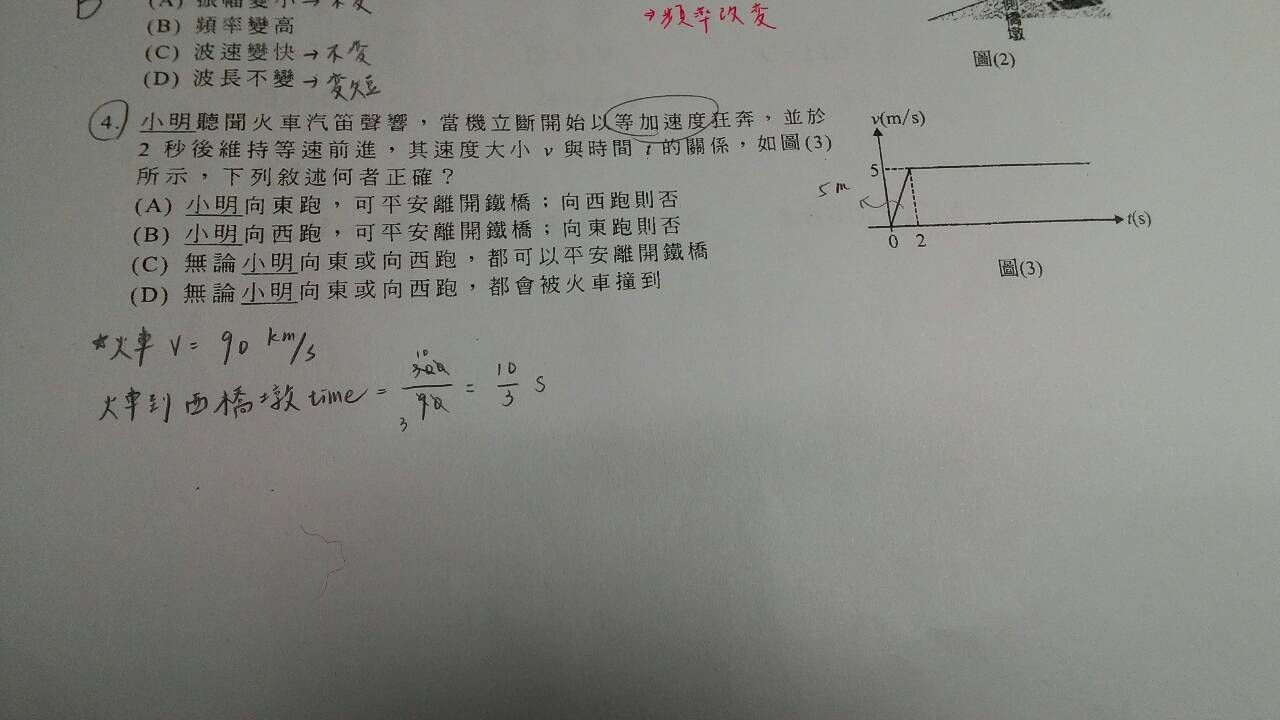 B
(A) 振幅變小→不变
(B) 頻率變高
→頻率改变
(C) 波速變快→不变
(D) 波長不變→变短
側橋墩
圖(2)
4. 小明聽聞火車汽笛聲響，當機立斷開始以等加速度狂奔，並於
2 秒後維持等速前進，其速度大小 v 與時間 t 的關係，如圖(3)
所示，下列敘述何者正確？
(A) 小明向東跑，可平安離開鐵橋；向西跑則否
(B) 小明向西跑，可平安離開鐵橋；向東跑則否
(C) 無論小明向東或向西跑，都可以平安離開鐵橋
(D) 無論小明向東或向西跑，都會被火車撞到
v(m/s)
5
5m
t(s)
0 2
圖(3)
*火車 V = 90 km/s
火車到西橋墩 time = 300/90 = 10/3 s
10
3